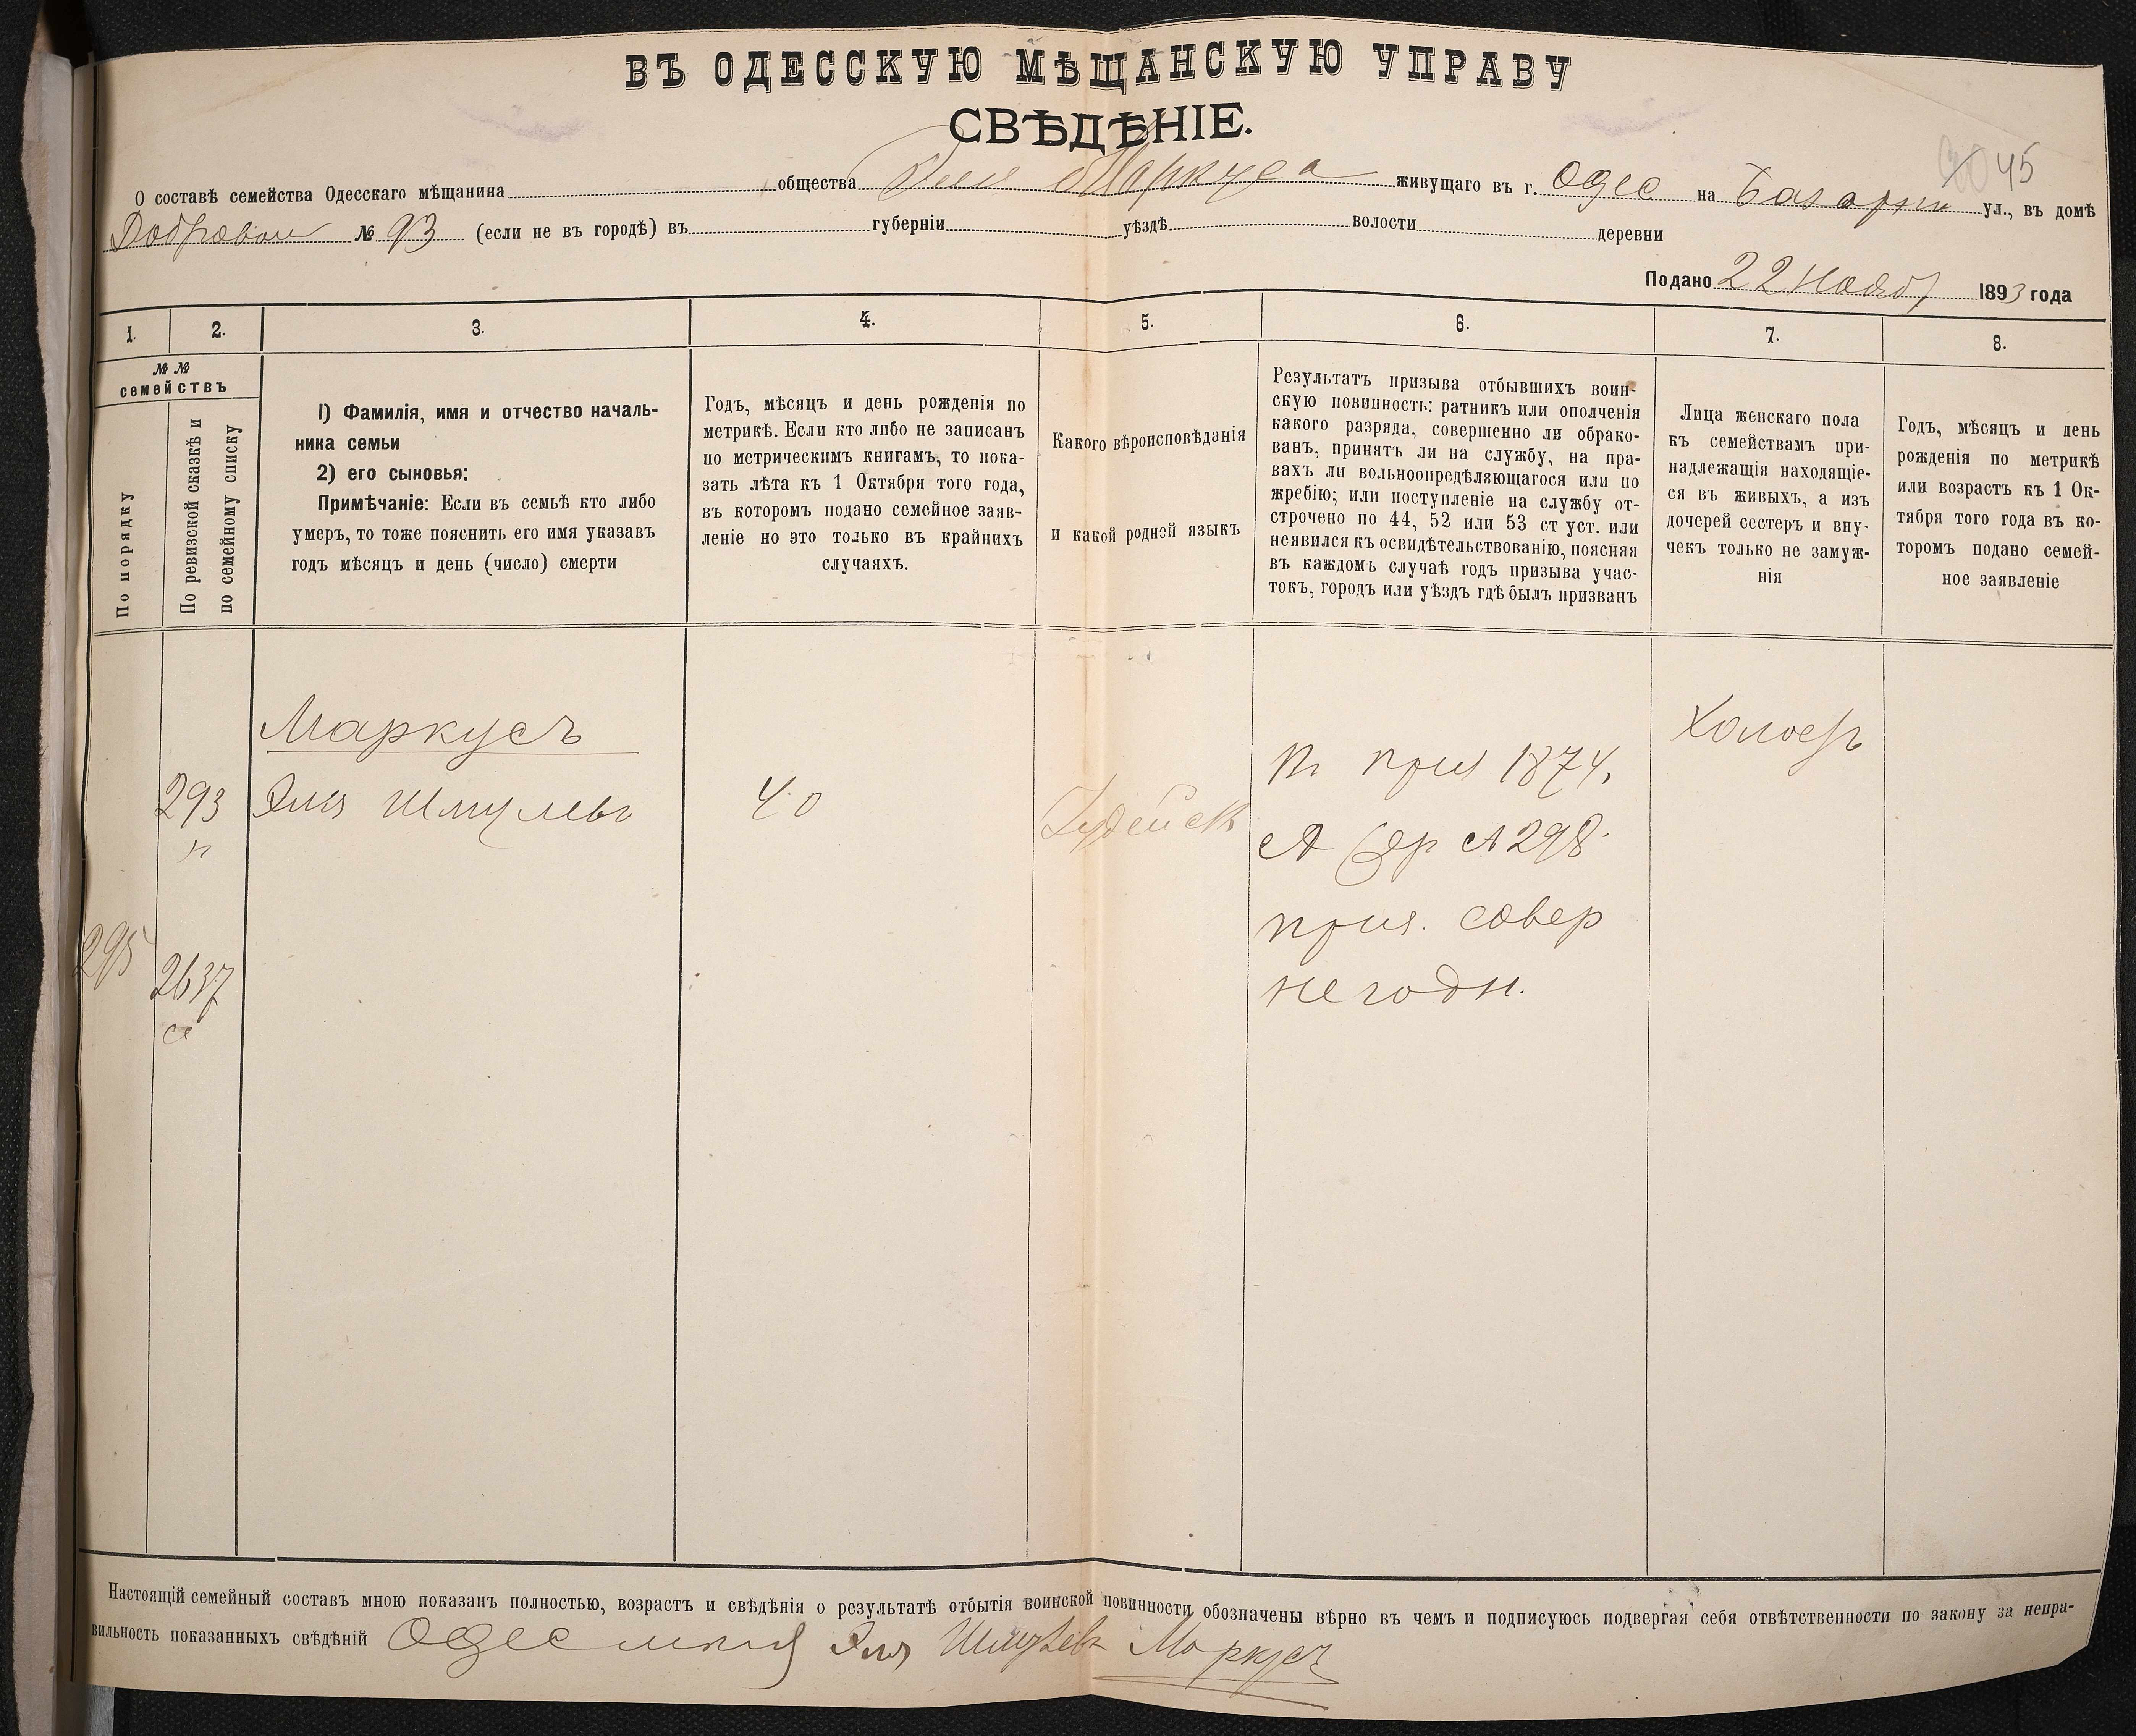 ВЪ ОДЕССКУЮ МѢЩАНСКУЮ УПРАВУ
СВѢДѢНІЕ.
45
О составѣ семейства Одесскаго мѣщанина общества Эля Маркуса живущаго въ г. Одес на Базарн ул., въ домѣ
№ 93 (если не въ городѣ) въ губерніи уѣздѣ волости деревни
Подано 22 Нояб 1893 года
1. 2. 3. 4. 5. 6. 7. 8.
№ №
семействъ
По порядку
По ревизской сказкѣ и
по семейному списку
1) Фамилія, имя и отчество началь-
ника семьи
2) его сыновья:
Примѣчаніе: Если въ семьѣ кто либо
умеръ, то тоже пояснить его имя указавъ
годъ мѣсяцъ и день (число) смерти
Годъ, мѣсяцъ и день рожденія по
метрикѣ. Если кто либо не записанъ
по метрическимъ книгамъ, то пока-
зать лѣта къ 1 Октября того года,
въ которомъ подано семейное заяв-
леніе но это только въ крайнихъ
случаяхъ.
Какого вѣроисповѣданія
и какой родной языкъ
Результатъ призыва отбывшихъ воин-
скую повинность: ратникъ или ополченія
какого разряда, совершенно ли обрако-
ванъ, принятъ ли на службу, на пра-
вахъ ли вольноопредѣляющагося или по
жребію; или поступленіе на службу от-
строчено по 44, 52 или 53 ст уст. или
неявился къ освидѣтельствованію, поясняя
въ каждомъ случаѣ годъ призыва учас-
токъ, городъ или уѣздъ гдѣ былъ призванъ
Лица женскаго пола
къ семействамъ при-
надлежащія находящіе-
ся въ живыхъ, а изъ
дочерей сестеръ и вну-
чекъ только не замуж-
нія
Годъ, мѣсяцъ и день
рожденія по метрикѣ
или возрастъ къ 1 Ок-
тября того года въ ко-
торомъ подано семей-
ное заявленіе
Маркусъ
293 Эля Шмулевъ 40 Іудейск
п
295
2637
с
при 1874.
298
призн. совер
не годн.
Холостъ
Настоящій семейный составъ мною показанъ полностью, возрастъ и свѣдѣнія о результатѣ отбытія воинской повинности обозначены вѣрно въ чемъ и подписуюсь подвергая себя отвѣтственности по закону за непра-
вильность показанныхъ свѣдѣній Одес мѣщ Эля Шмулевъ Маркусъ